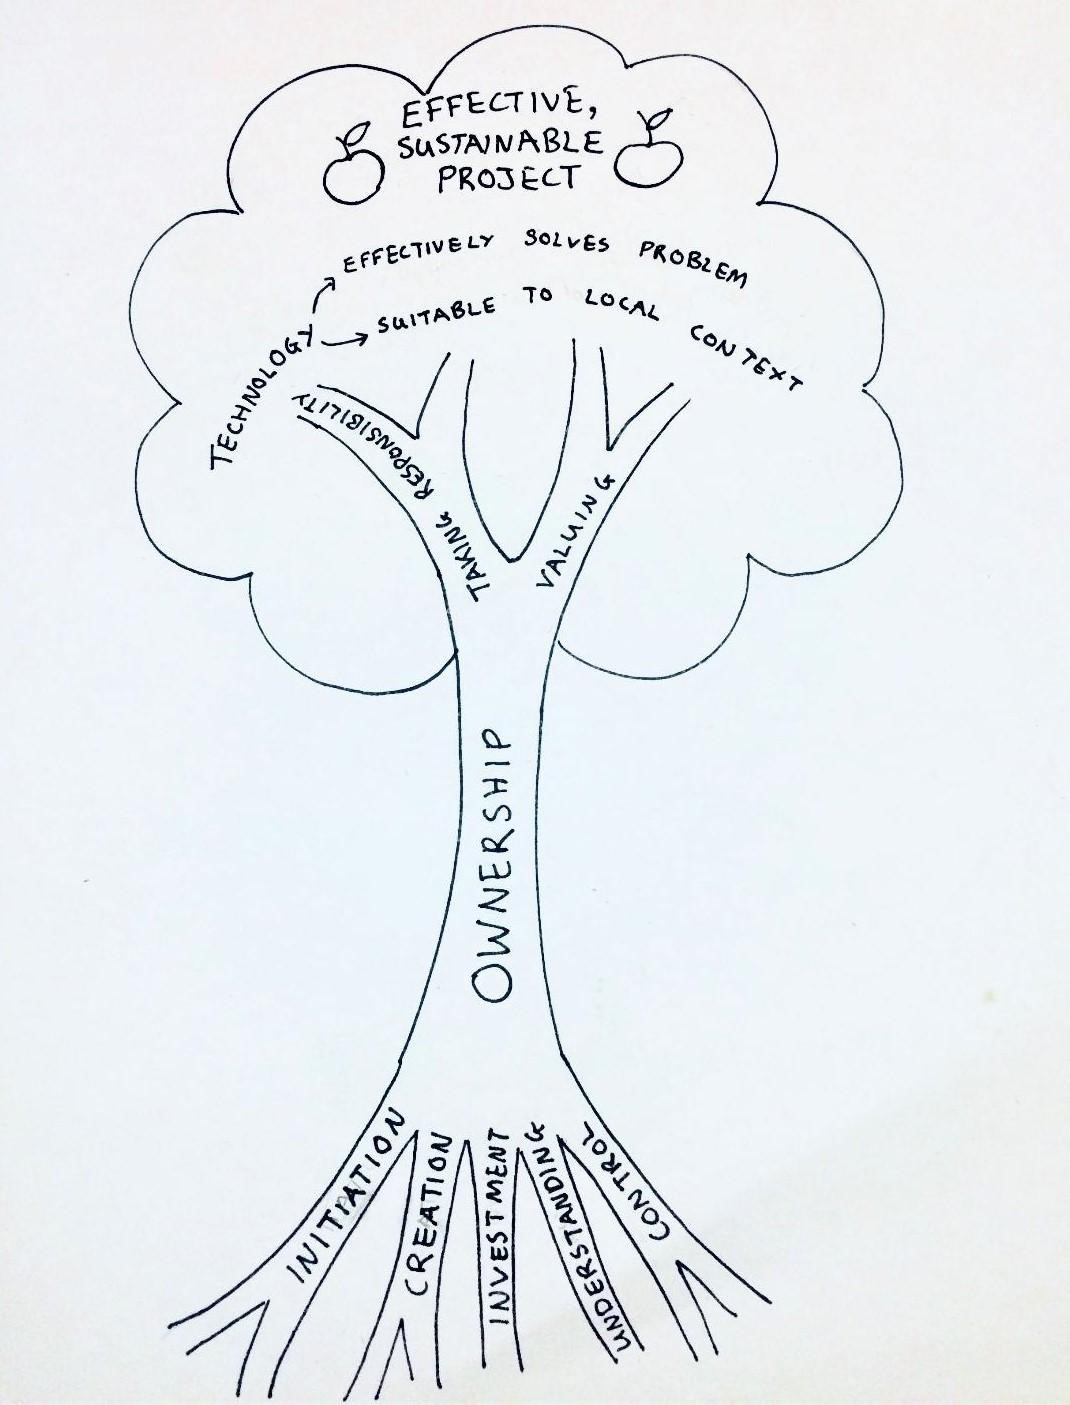 EFFECTIVE,
SUSTAINABLE
PROJECT
EFFECTIVELY SOLVES PROBLEM
SUITABLE TO LOCAL CONTEXT
TECHNOLOGY
TAKING RESPONSIBILITY
VALUING
OWNERSHIP
INITIATION
CREATION
INVESTMENT
UNDERSTANDING
CONTROL